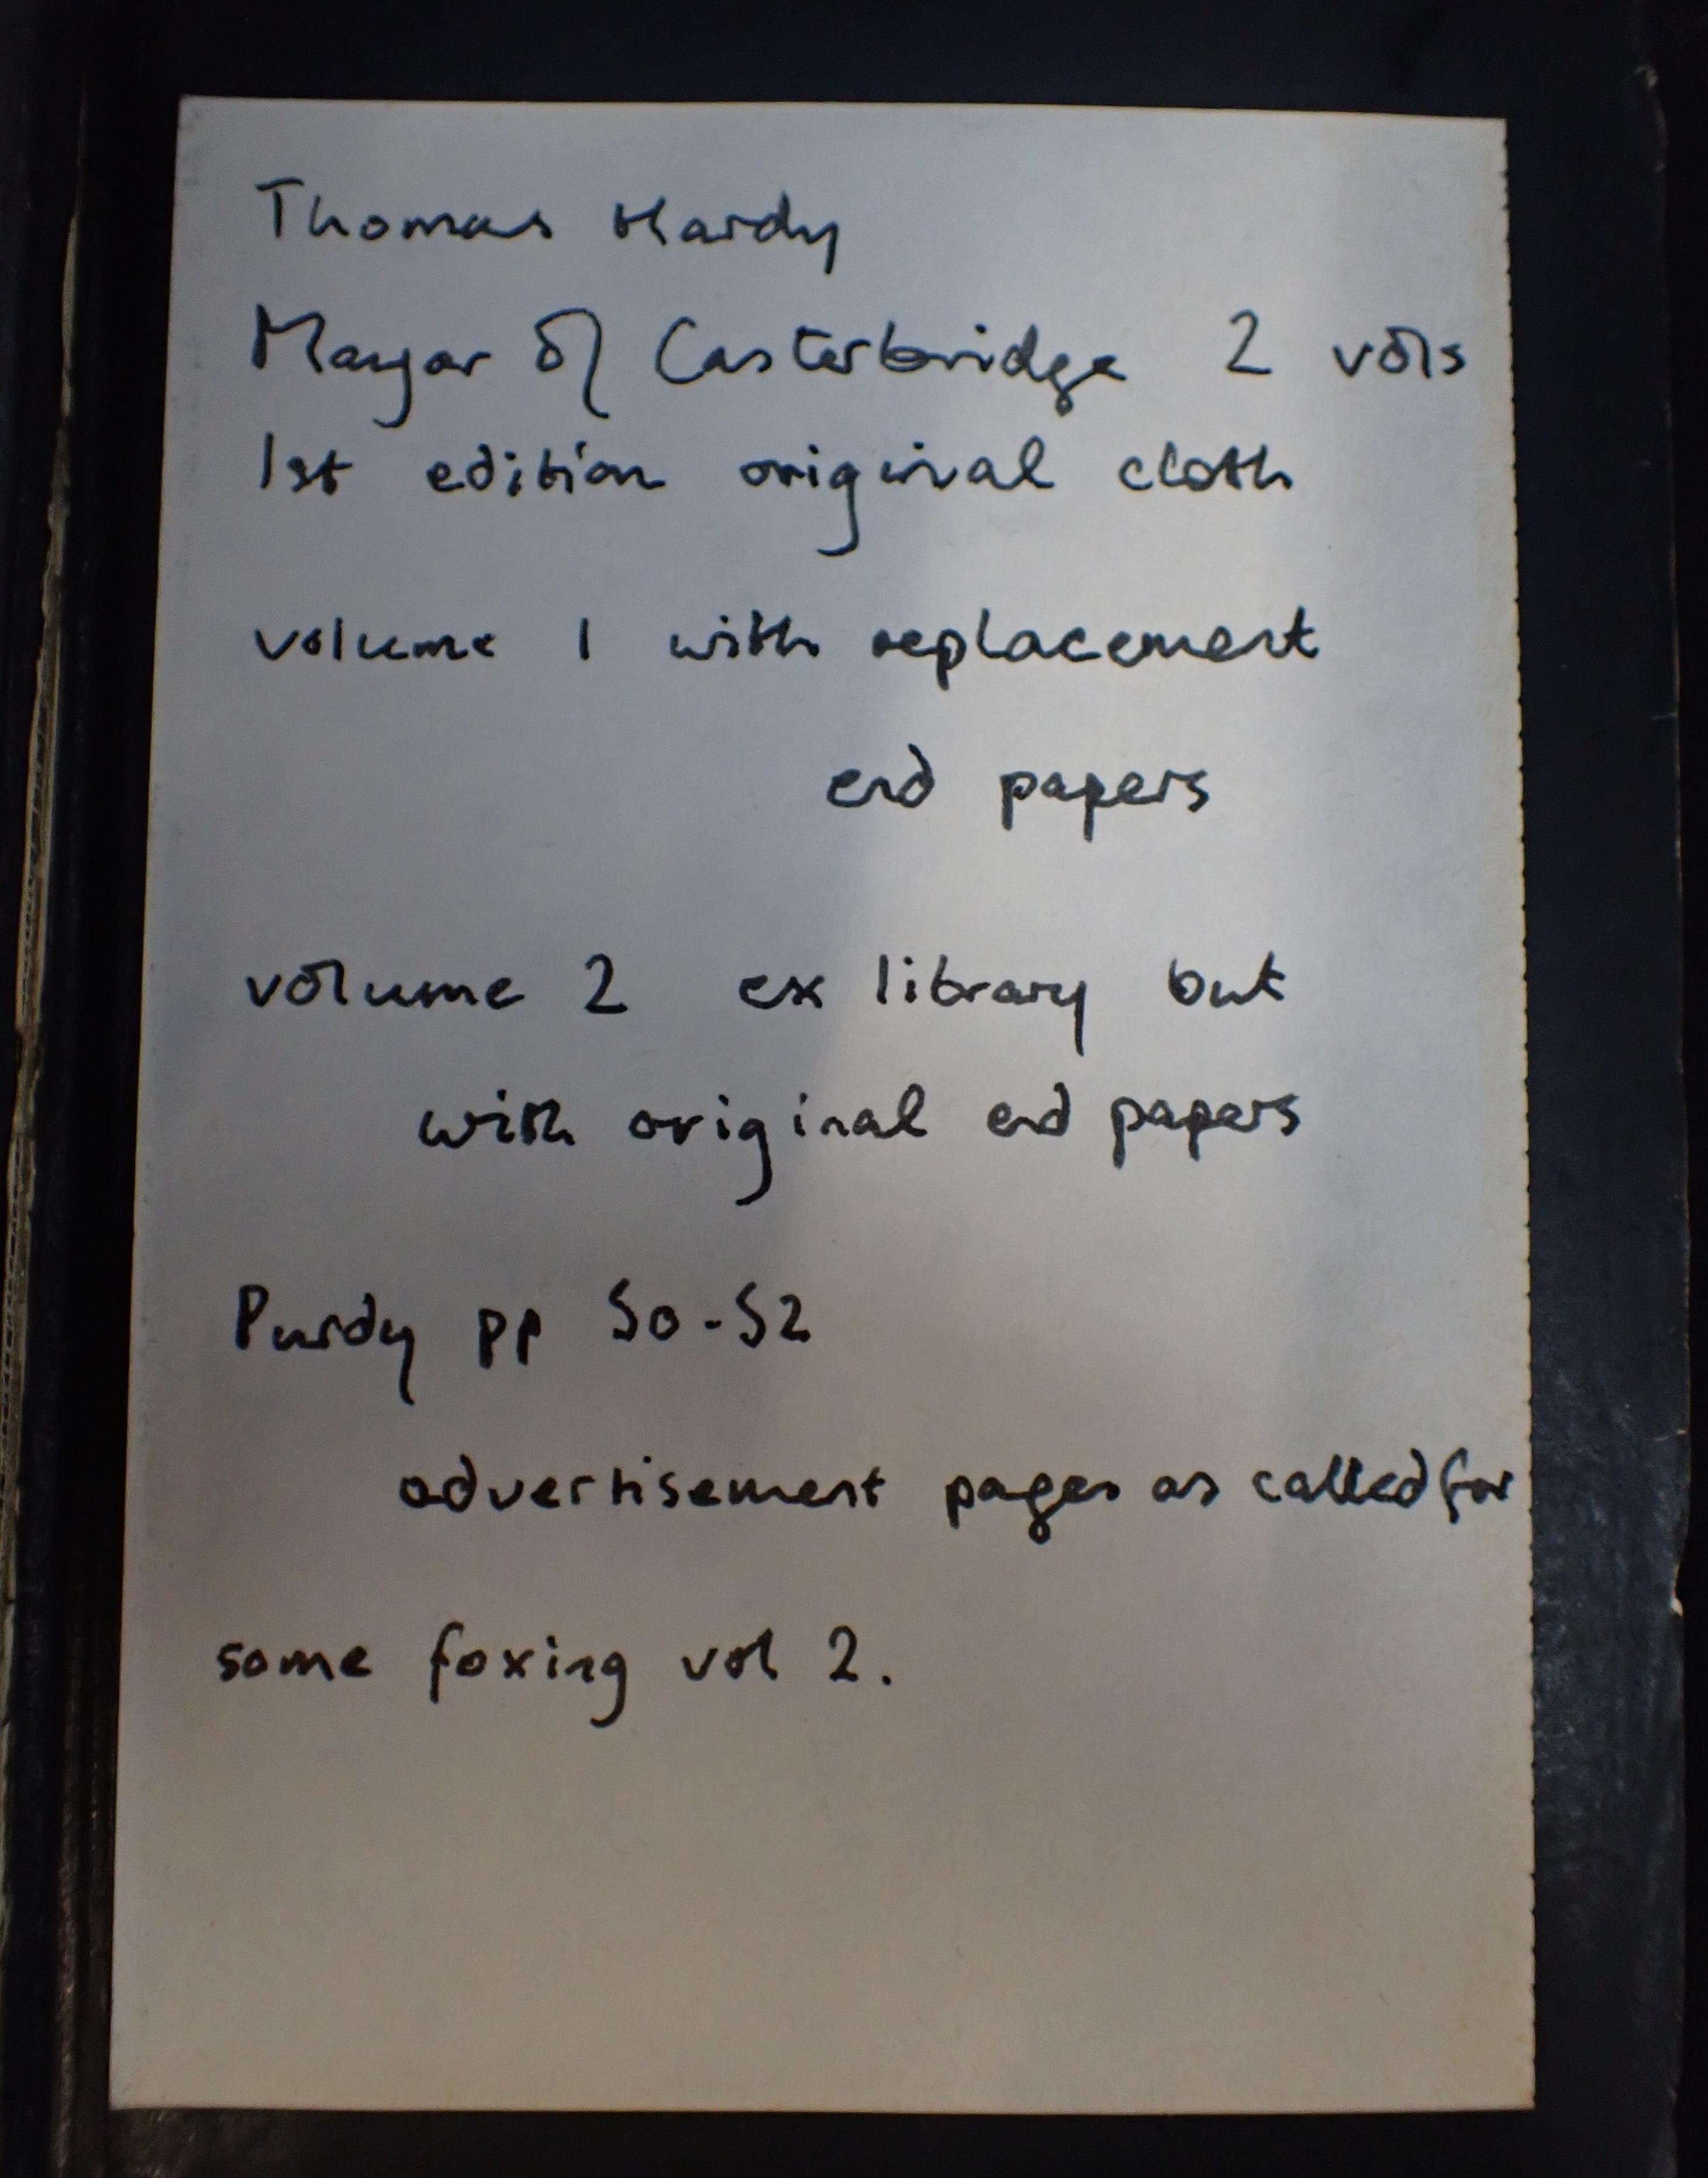 Thomas Hardy
Mayor of Casterbridge 2 vols
1st edition original cloth
volume 1 with replacement
end papers
volume 2 ex library but
with original end papers
Purdy pp 50-52
advertisement pages as called for
some foxing vol 2.